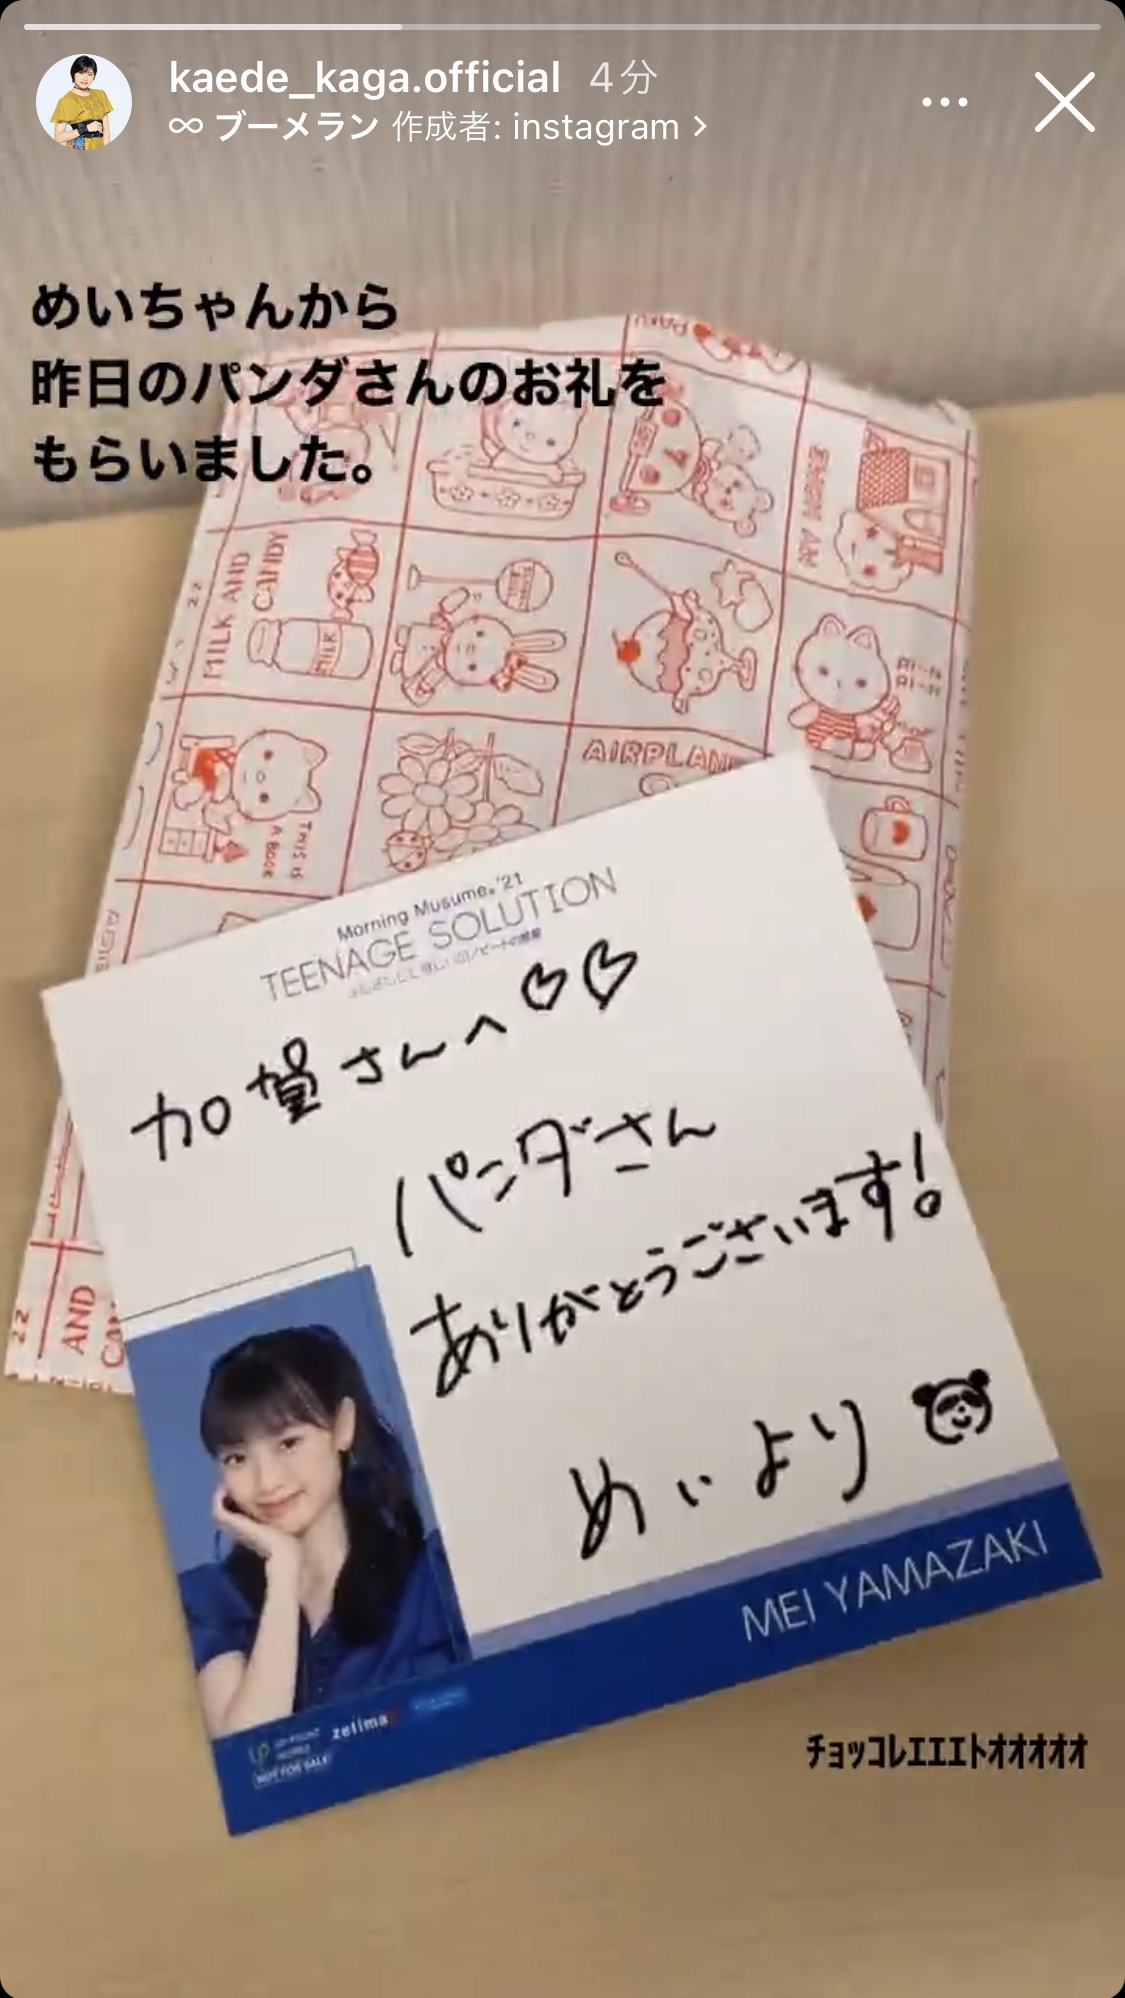 kaede_kaga.official 4分
∞ ブーメラン 作成者: instagram >
めいちゃんから
昨日のパンダさんのお礼を
もらいました。
MILK AND
CANDY
MILK
THIS IS
A BOOK
AIRPLANE
Morning Musume。'21
TEENAGE SOLUTION
加賀さんへ♡♡
パンダさん
ありがとうございます!
めいより
AND
22
MEI YAMAZAKI
UP-FRONT
WORKS
zetima
NOT FOR SALE
ﾁｮｯｺﾚｴｴｴﾄｵｵｵｵｵ